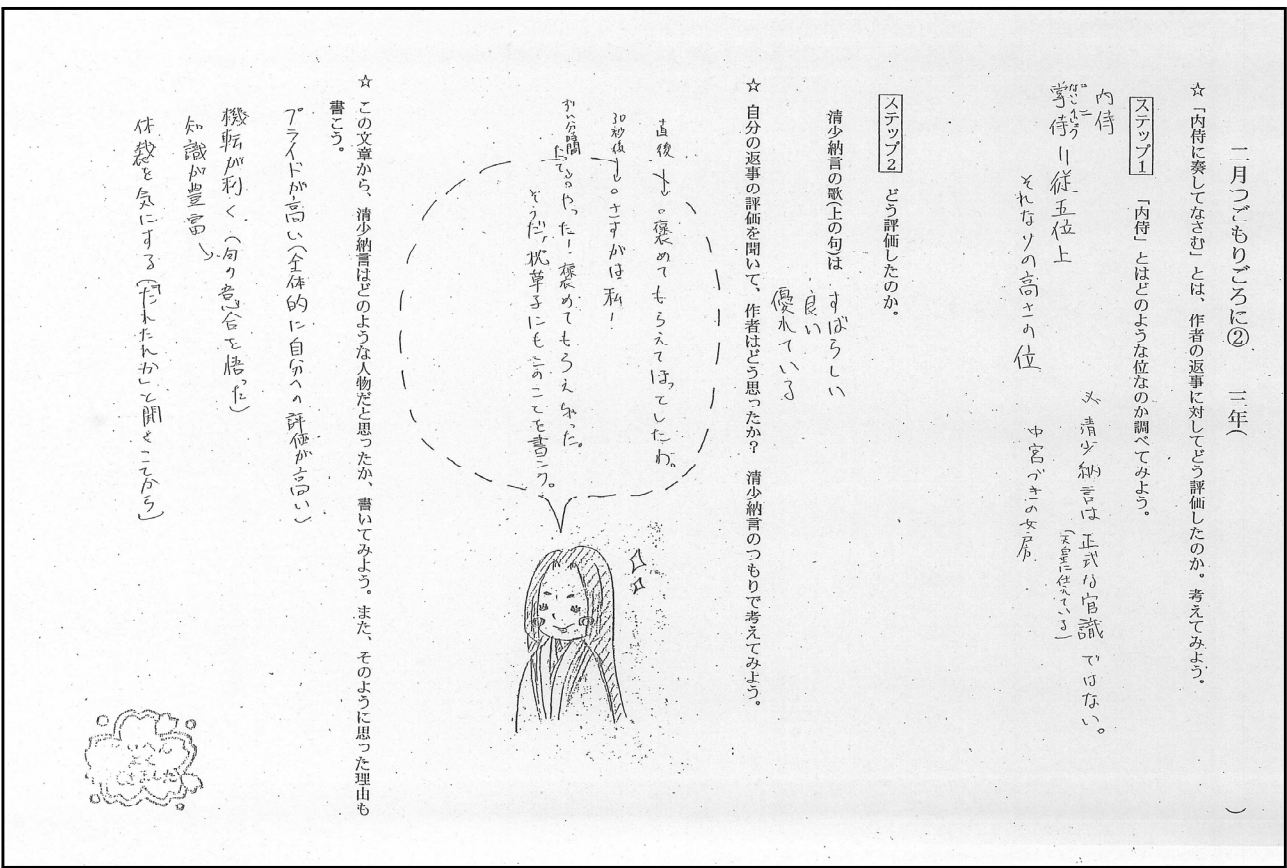 二月つごもりごろに② 二年( )
☆「内侍に奏してなさむ」とは、作者の返事に対してどう評価したのか。考えてみよう。
ステップ1 「内侍」とはどのような位なのか調べてみよう。
内侍
掌侍=従五位上
それなりの高さの位
※清少納言は正式な官識ではない。
(天皇に仕えている)
中宮づきの女房
ステップ2 どう評価したのか。
清少納言の歌(上の句)は すばらしい
良い
優れている
☆ 自分の返事の評価を聞いて、作者はどう思ったか? 清少納言のつもりで考えてみよう。
直後→。褒めてもらえてほってしたわ。
30秒後→。さすがは私!
ずい分時間
たってるのやった!褒めてもらえちゃった。
そうだ、枕草子にもこのことを書こう。
☆ この文章から、清少納言はどのような人物だと思ったか、書いてみよう。また、そのように思った理由も
書こう。
プライドが高い(全体的に自分への評価が高い)
機転が利く(句の意合を悟った)
知識が豊富
体裁を気にする(「だれたれか」と聞きってから)
たいへん
よく
できました